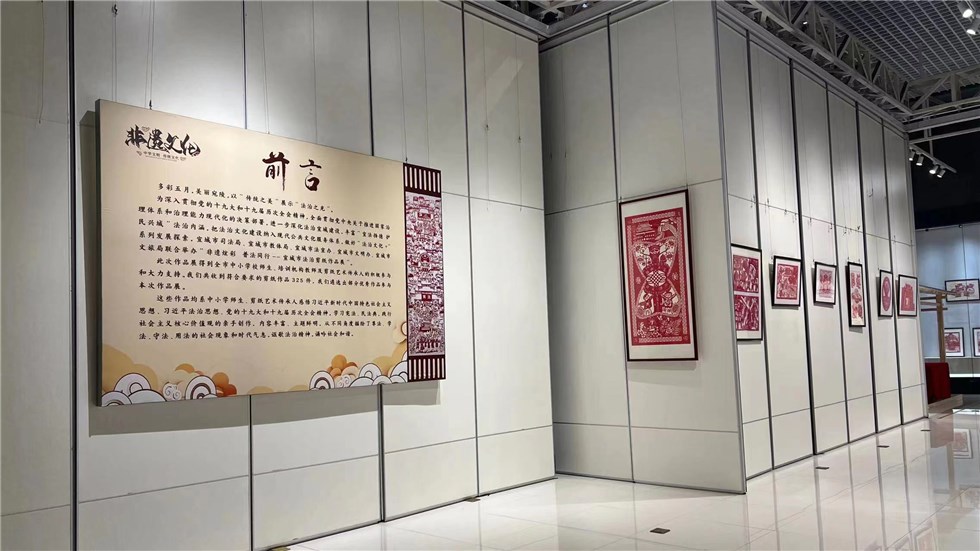 非遗文化
前言
多彩五月，美丽宛陵，以“传统之美”展示“法治之美”。
为深入贯彻党的十九大和十九届历次全会精神，全面贯彻党中央关于推进国家治
理体系和治理能力现代化的决策部署，进一步深化法治宣城建设，丰富“宣法铁律 护
民兴城”法治内涵，把法治文化建设纳入现代公共文化服务体系，做好“法治文化+”
系列发展探索，宣城市司法局、宣城市教体局、宣城市法宣办、宣城市文明办、宣城市
文旅局联合举办“非遗炫彩 普法同行--宣城市法治剪纸作品展”。
此次作品展得到全市中小学校师生、培训机构教师及剪纸艺术传承人的积极参与
和大力支持，我们共收到符合要求的剪纸作品325件，我们遴选出部分优秀作品参与
本次作品展。
这些作品均系中小学师生、剪纸艺术传承人感悟习近平新时代中国特色社会主义
思想、习近平法治思想、党的十九大和十九届历次全会精神，学习宪法、民法典，践行
社会主义核心价值观的亲手创作，内容丰富，主题鲜明，从不同角度描绘了尊法、学
法、守法、用法的社会现象和时代气息，讴歌法治精神，涵咏社会和谐。